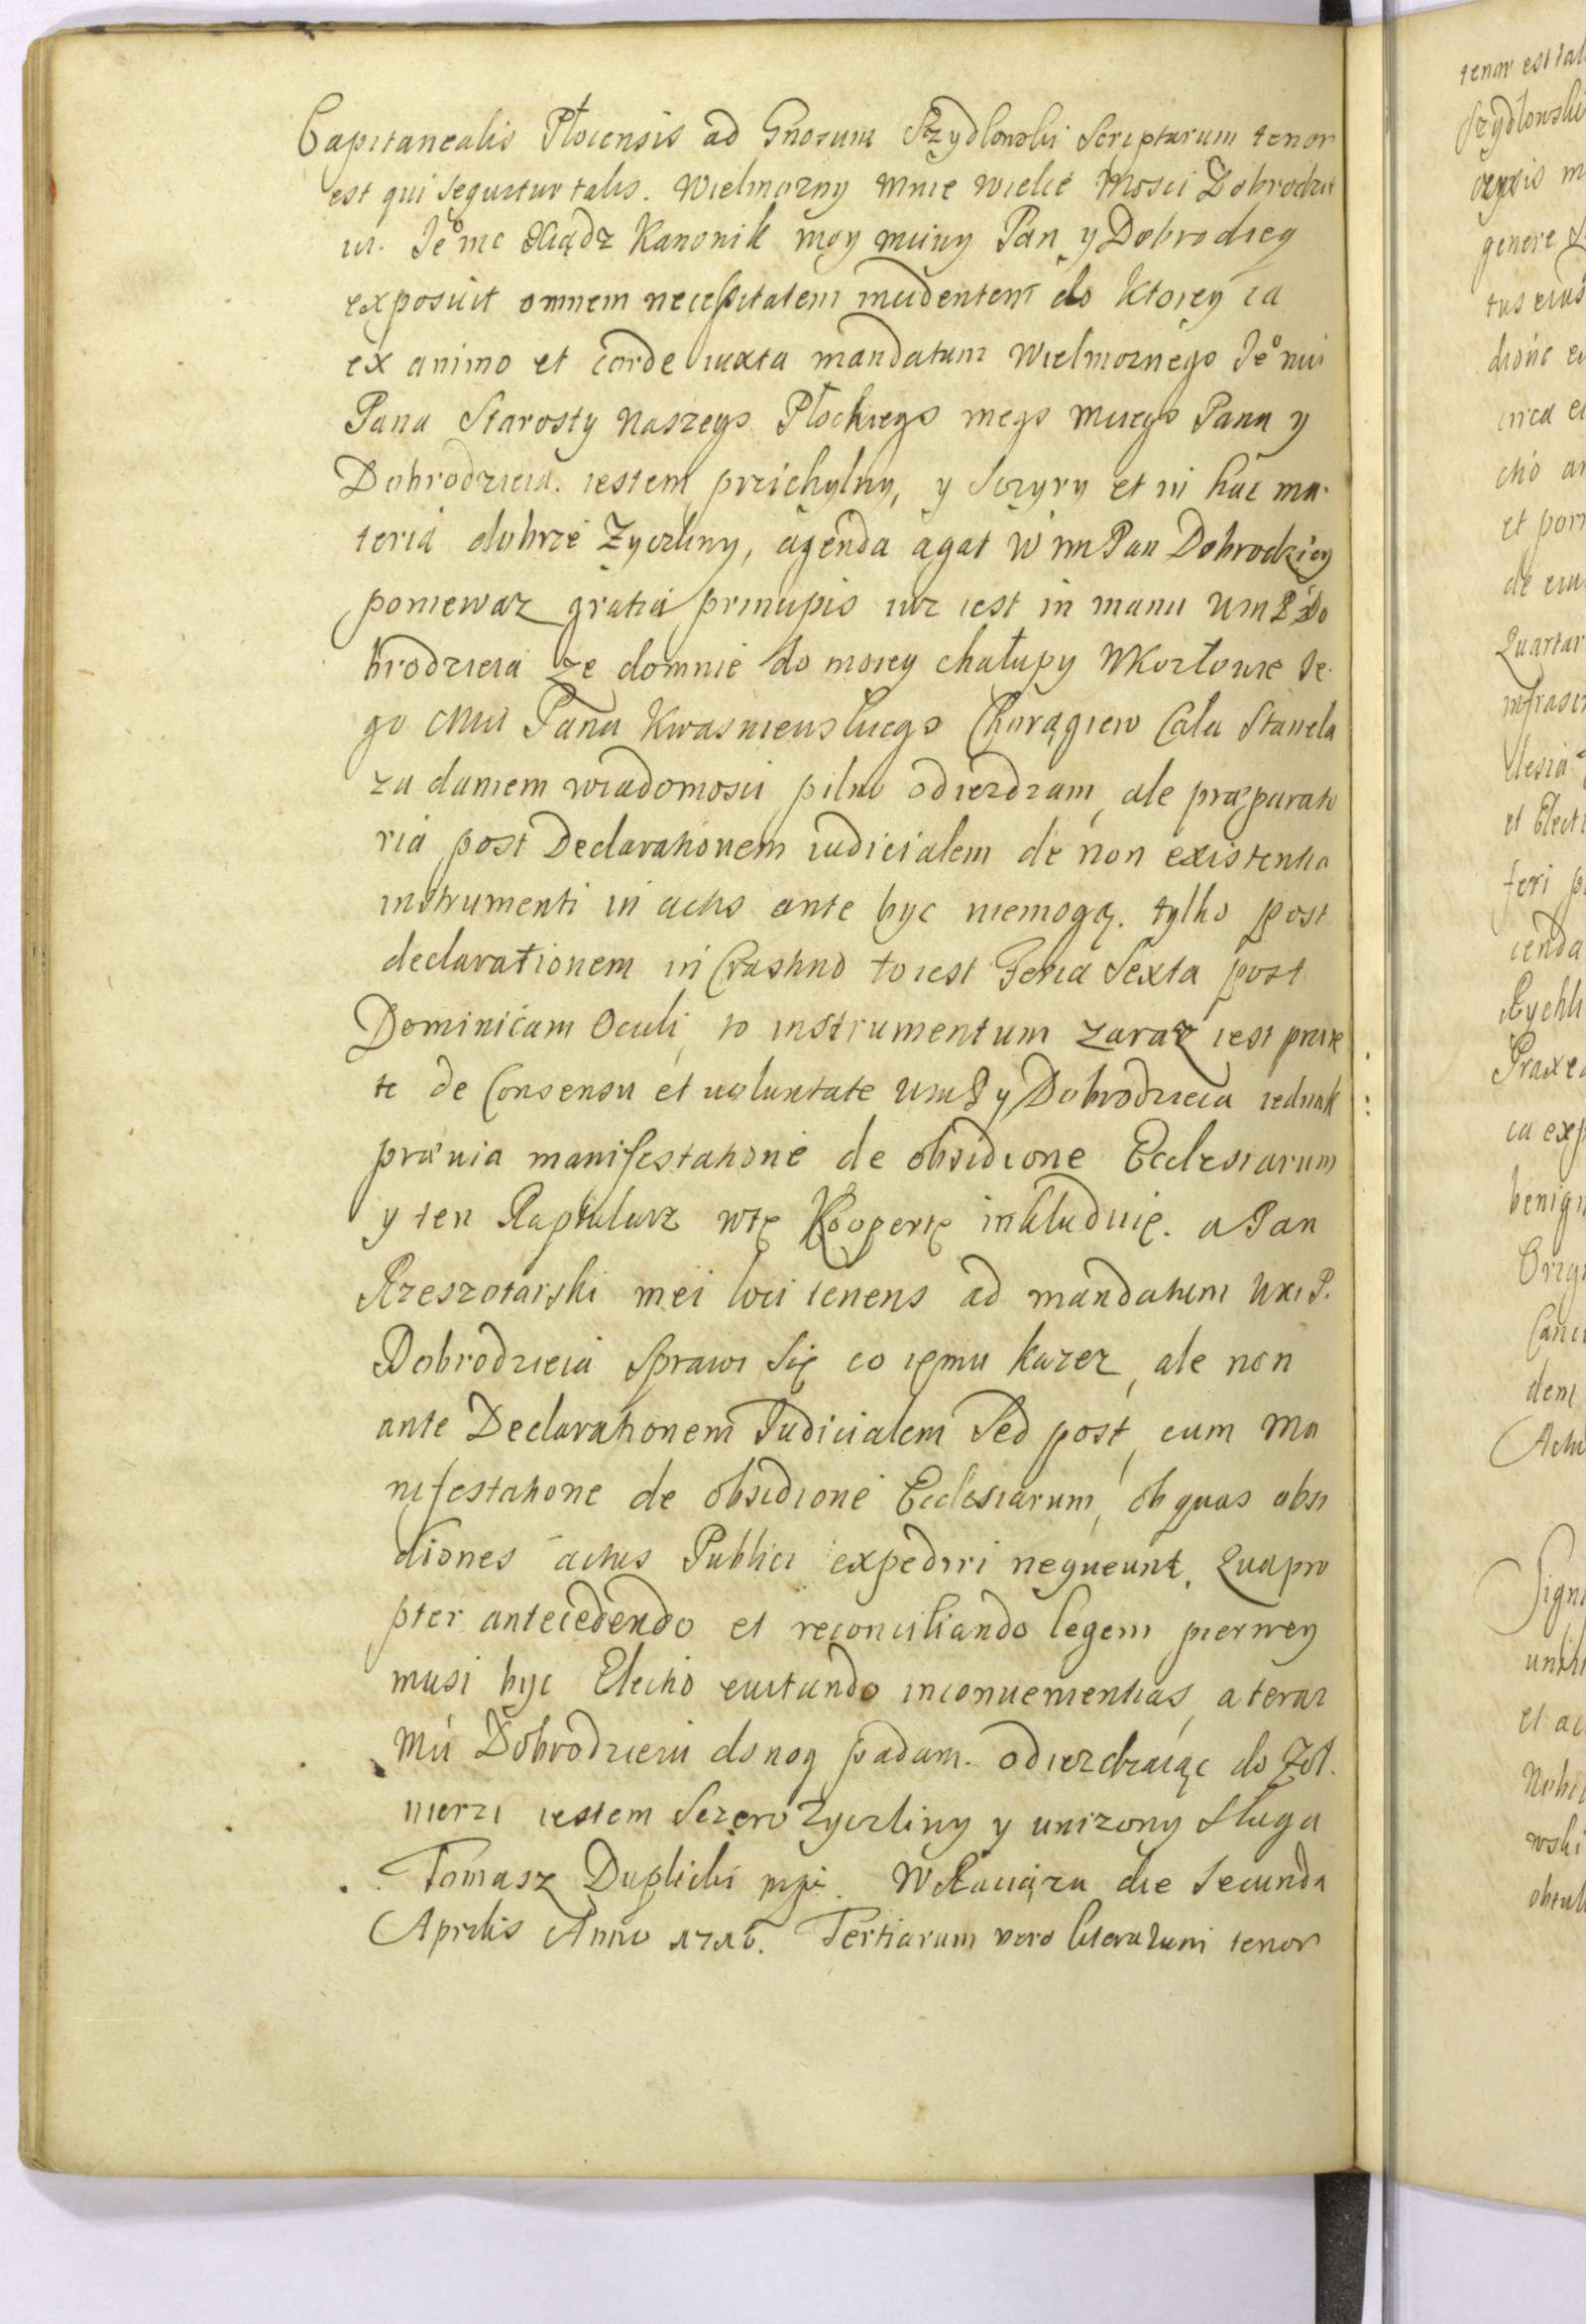 Capitanealis Płocensis ad Gnosum Szydlowski Scriptarum tenor
est qui sequitur talis. Wielmozny Mnie wielce Mosci Dobrodzie
iu. Jeomc Xiądz Kanonik moy mciwy Pan y Dobrodziey
exposuit omnem necessitatem incidentem do Ktorey ia
ex animo et corde iuxta mandatum Wielmoznego Jeomci
Pana Starosty Naszego Płockiego mego Mciwego Pana y
Dobrodzieia. iestem przichylny, y Sczyry et in hac ma-
teria dobrze Zyczliwy, agenda agat W m Pan Dobrodziey
poniewaz gratia principis iuz iest in manu WmP Do
brodzieia Ze domnie do moiey chałupy WKozłowie Je-
go Mci Pana Kwasniewskiego Chorągiew Cala Stanela
za daniem wiadomosci pilno odiezdzam, ale præparato
ria post Declarationem iudicialem de non existentia
instrumenti in actis ante byc niemogą. tylko post
declarationem in Crastino to iest Feria Sexta post
Dominicam Oculi, to instrumentum zaraz iest
te de Consensu et voluntate WmP y Dobrodzieia iednak
prævia manifestatione de obsidione Ecclesiarum
y ten Raptularz wtę Kopertę inkluduię. a Pan
Rzeszotarski mei loci tenens ad mandatum WmP.
Dobrodzieia Sprawi Się co iemu kazez, ale non
ante Declarationem Judicialem Sed post, cum Ma
nifestatione de obsidione Ecclesiarum, ob quas obsi
diones actus Publici expediri nequeunt, Quapro
pter antecedendo et reconciliando legem pierwey
musi byc Electio evitando inconvenientias, a teraz
Mci Dobrodzieiu donog padam. odiezdzaiąc do Zoł-
nierzi iestem Sczero Zyczliwy y unizony Sługa
Tomasz Duplicki mpi. WRaciązu die Secunda
Aprilis Anno 1716. Tertiarum vero literarum tenor